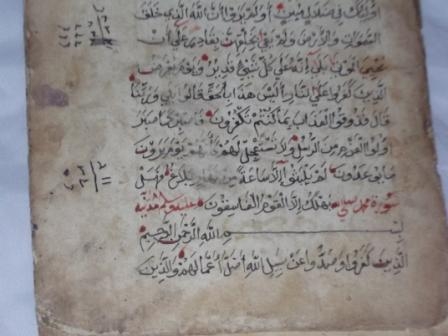 أولئك في ضلال مبين أولم يروا أن الله الذي خلق
السموات والأرض ولم يعي بخلقهن بقادر على أن
يحيي الموتى بلى إنه على كل شيء قدير ويوم يعرض
الذين كفروا على النار أليس هذا بالحق قالوا بلى وربنا
قال فذوقوا العذاب بما كنتم تكفرون فاصبر كما صبر
أولوا العزم من الرسل ولا تستعجل لهم كأنهم يوم يرون
ما يوعدون لم يلبثوا إلا ساعة من نهار بلغ فهل
سورة محمد يهلك إلا القوم الفاسقون مدنية
بسم الله الرحمن الرحيم
الذين كفروا وصدوا عن سبيل الله أضل أعمالهم والذين